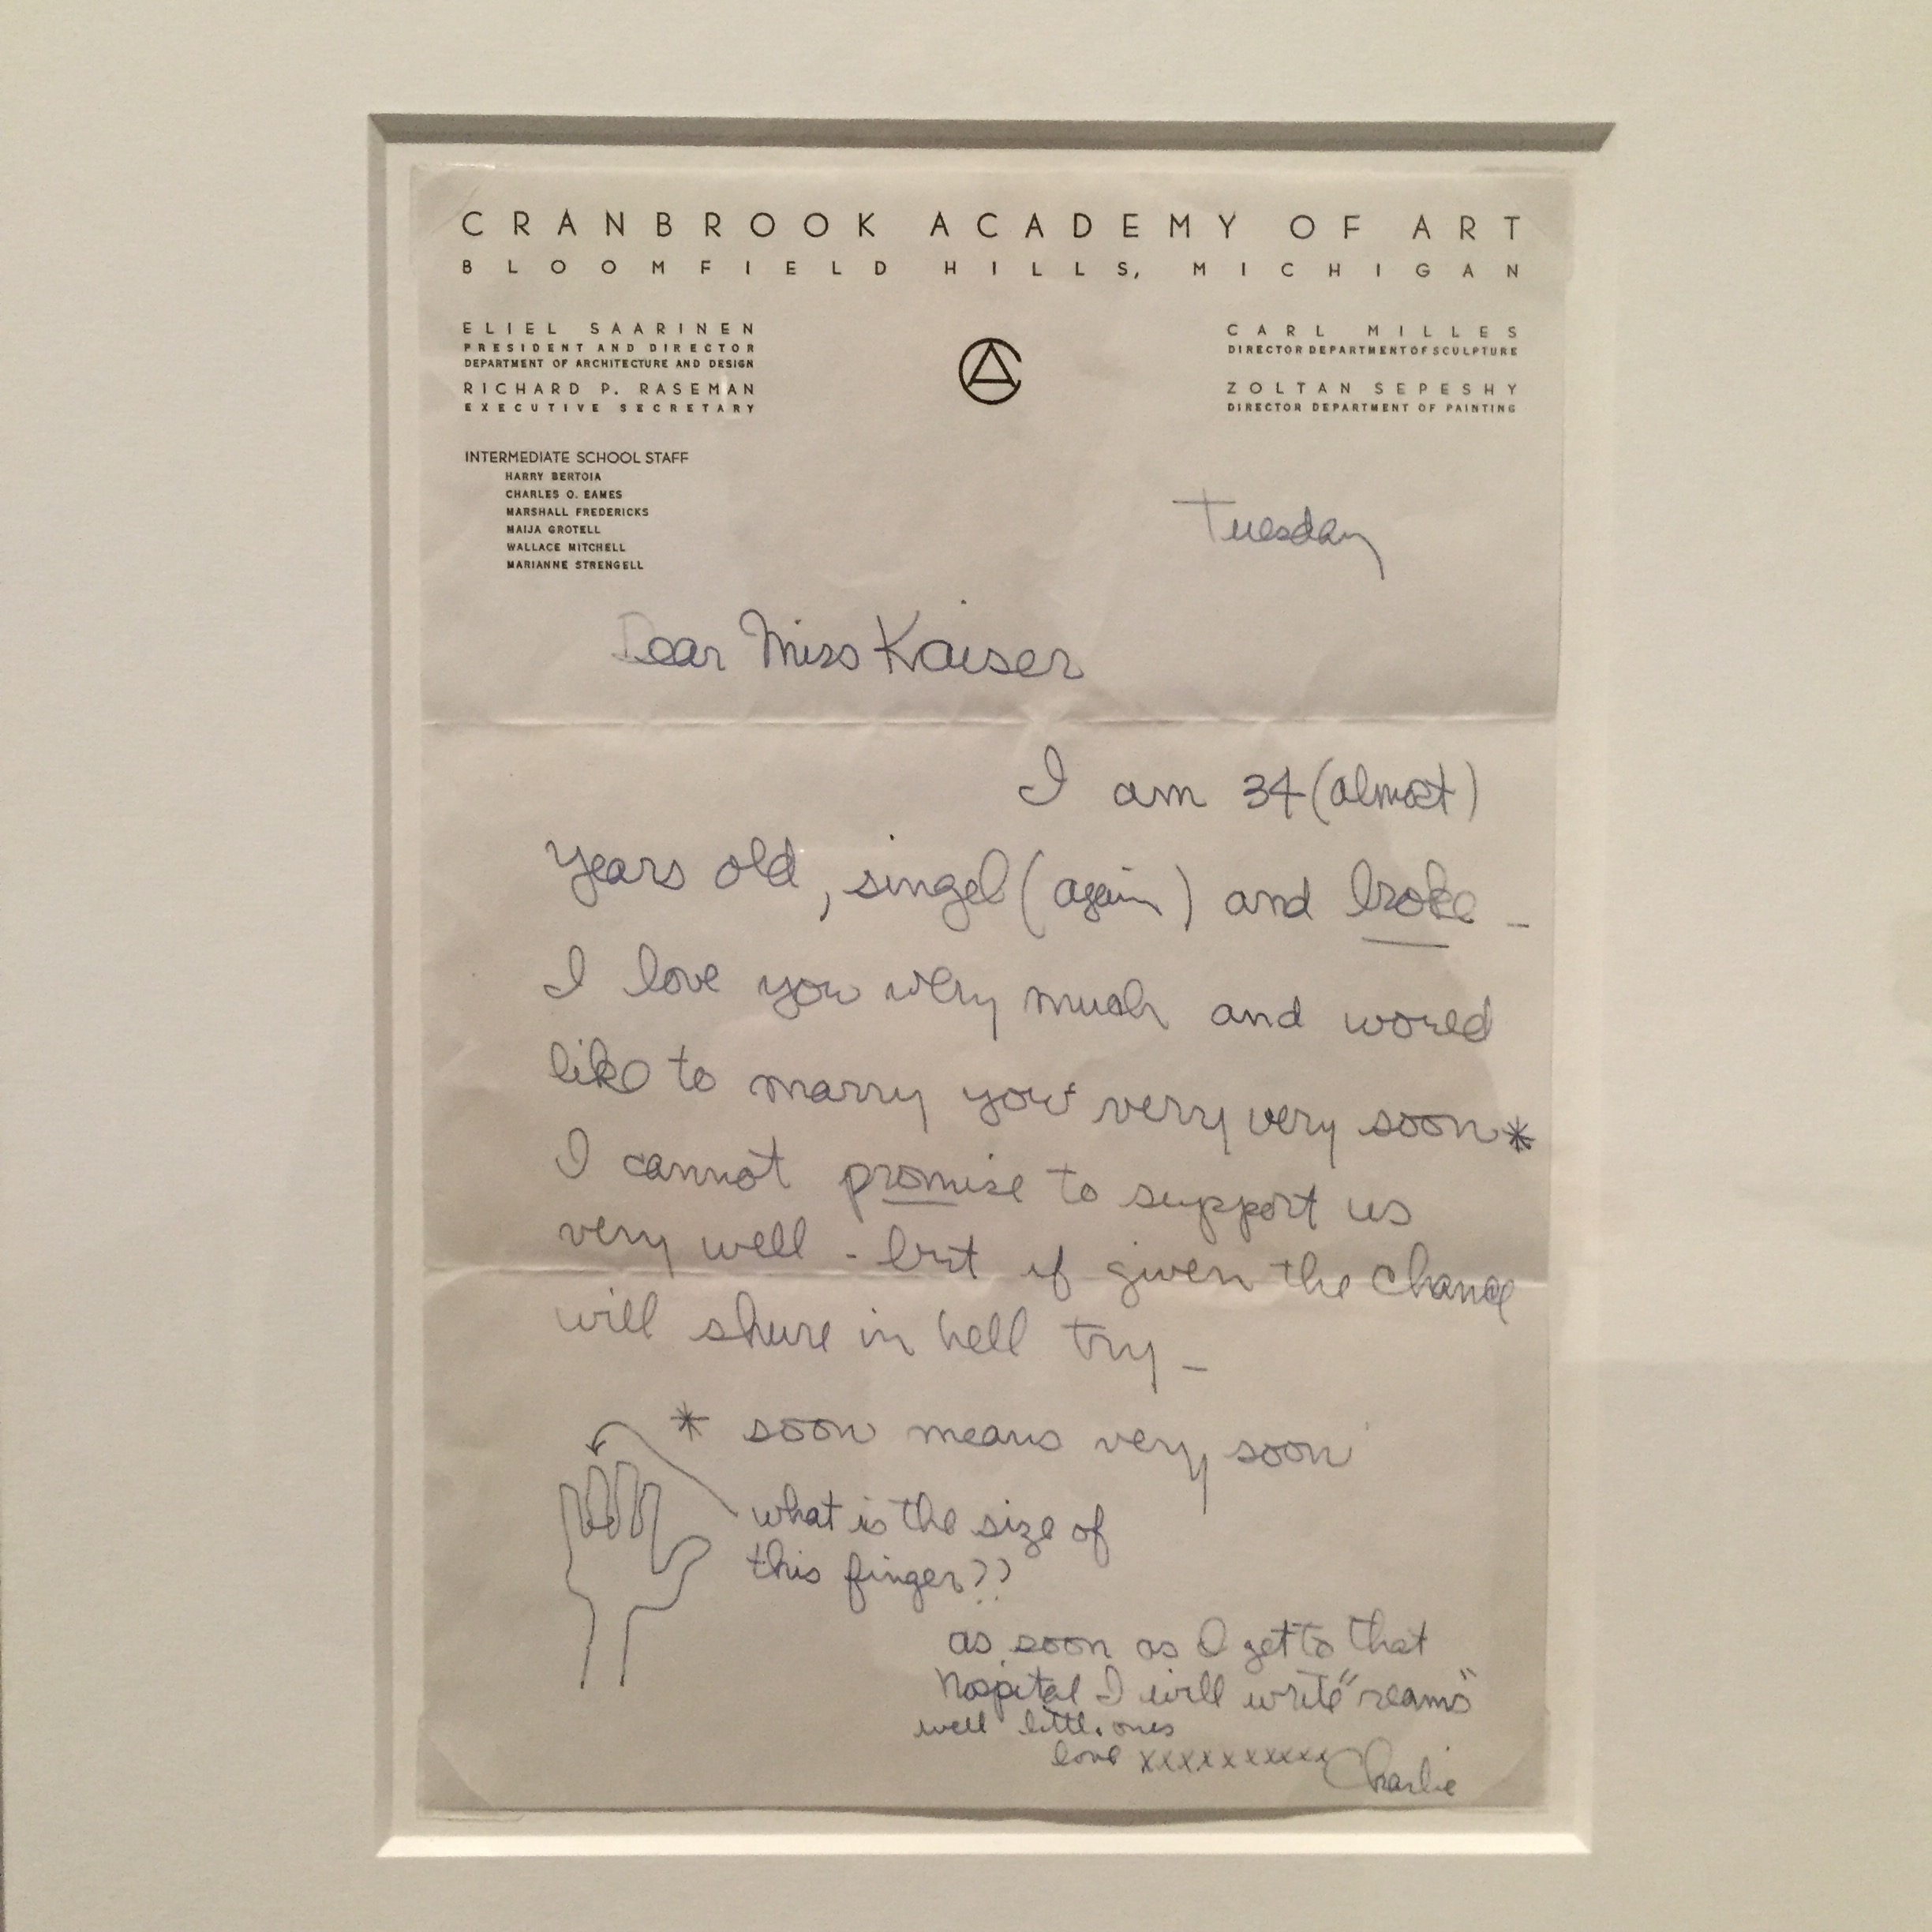 CRANBROOK ACADEMY OF ART
BLOOMFIELD HILLS, MICHIGAN
ELIEL SAARINEN
PRESIDENT AND DIRECTOR
DEPARTMENT OF ARCHITECTURE AND DESIGN
RICHARD P. RASEMAN
EXECUTIVE SECRETARY
CARL MILLES
DIRECTOR DEPARTMENT OF SCULPTURE
ZOLTAN SEPESHY
DIRECTOR DEPARTMENT OF PAINTING
INTERMEDIATE SCHOOL STAFF
HARRY BERTOIA
CHARLES O. EAMES
MARSHALL FREDERICKS
MAIJA GROTELL
WALLACE MITCHELL
MARIANNE STRENGELL
Tuesday
Dear Miss Kaiser
I am 34 (almost)
years old, singel (again) and broke -
I love you very much and would
like to marry you very very soon*
I cannot promise to support us
very well - but if given the chance
will shure in hell try -
* soon means very soon
what is the size of
this finger??
as soon as I get to that
hospital I will write "reams"
well little ones
love xxxxxxxxxx Charlie